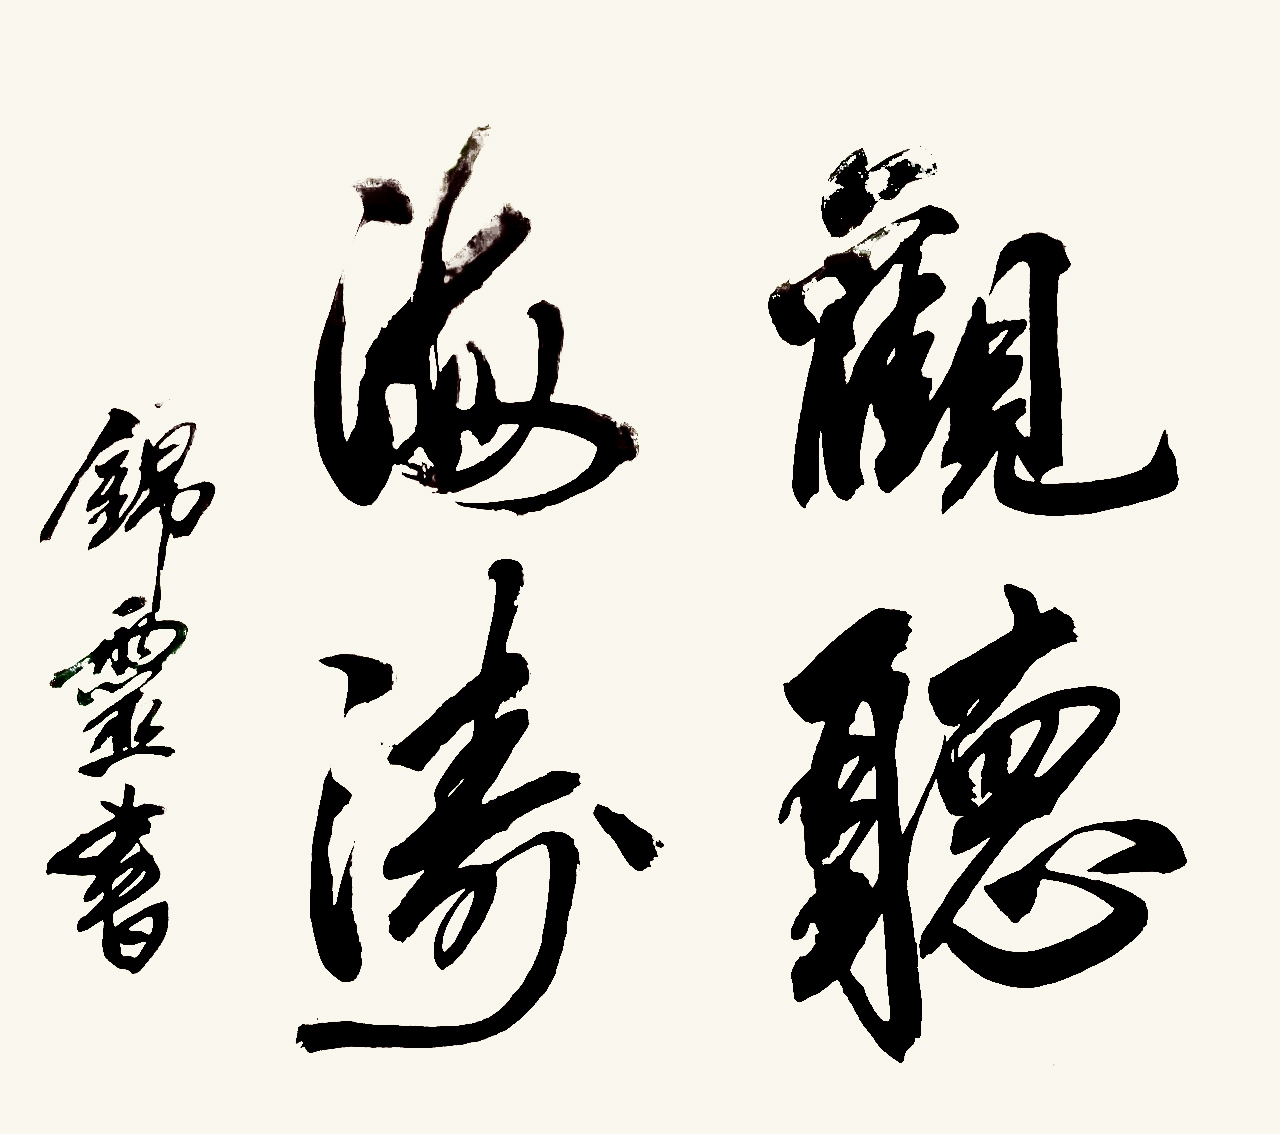 觀聽
海濤
錦靈書